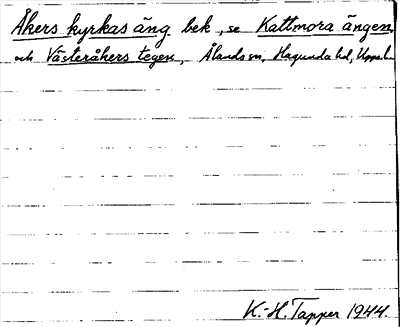 Åkers kyrkas äng bek, se Kattmora ängen
och Västeråkers tegen, Ålands sn, Hagunda hd, Upps.l.
K.-H. Tapper 1944.